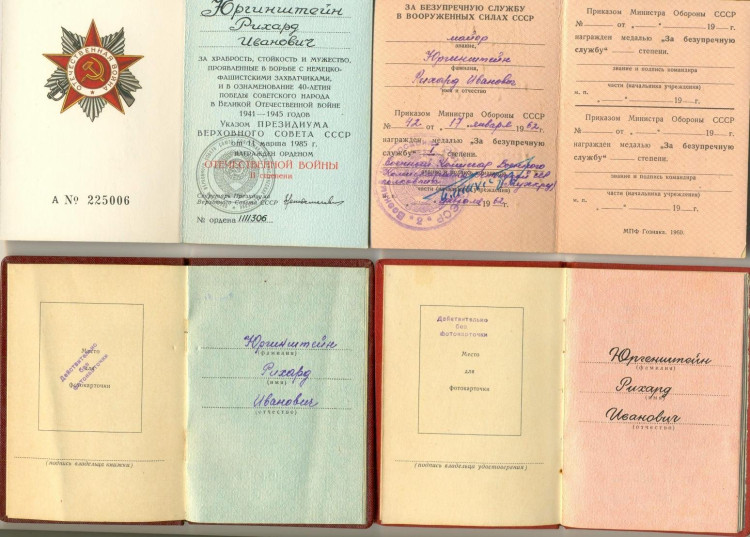 ОТЕЧЕСТВЕННАЯ ВОЙНА
А № 225006
Юргинштейн
Рихард
Иванович
ЗА ХРАБРОСТЬ, СТОЙКОСТЬ И МУЖЕСТВО,
ПРОЯВЛЕННЫЕ В БОРЬБЕ С НЕМЕЦКО-
ФАШИСТСКИМИ ЗАХВАТЧИКАМИ,
И В ОЗНАМЕНОВАНИЕ 40-ЛЕТИЯ
ПОБЕДЫ СОВЕТСКОГО НАРОДА
В ВЕЛИКОЙ ОТЕЧЕСТВЕННОЙ ВОЙНЕ
1941—1945 ГОДОВ
Указом ПРЕЗИДИУМА
ВЕРХОВНОГО СОВЕТА СССР
от 11 марта 1985 г.
НАГРАЖДЕН ОРДЕНОМ
ОТЕЧЕСТВЕННОЙ ВОЙНЫ
II степени
Секретарь Президиума
Верховного Совета СССР
№ ордена 1111306
ЗА БЕЗУПРЕЧНУЮ СЛУЖБУ
В ВООРУЖЕННЫХ СИЛАХ СССР
майор
звание,
Юргинштейн
фамилия,
Рихард Иванович
имя и отчество
Приказом Министра Обороны СССР
№ 42 от „17 января 1962г.
награжден медалью „За безупречную
службу“ I степени.
Военный Комиссар
звание и подпись командира
части (начальника учреждения)
1962г.
Приказом Министра Обороны СССР
№ от „ “ 19 г.
награжден медалью „За безупречную
службу“ степени.
звание и подпись командира
части (начальника учреждения)
м. п.
„ “ 19 г.
Приказом Министра Обороны СССР
№ от „ “ 19 г.
награжден медалью „За безупречную
службу“ степени.
звание и подпись командира
части (начальника учреждения)
м. п.
„ “ 19 г.
МПФ Гознака. 1960.
Место
для
фотокарточки
Действительно
без
фотокарточки
(подпись владельца книжки)
Юргинштейн
(фамилия)
Рихард
(имя)
Иванович
(отчество)
Действительно
без
фотокарточки
Место
для
фотокарточки
(подпись владельца удостоверения)
Юргенштейн
(фамилия)
Рихард
(имя)
Иванович
(отчество)